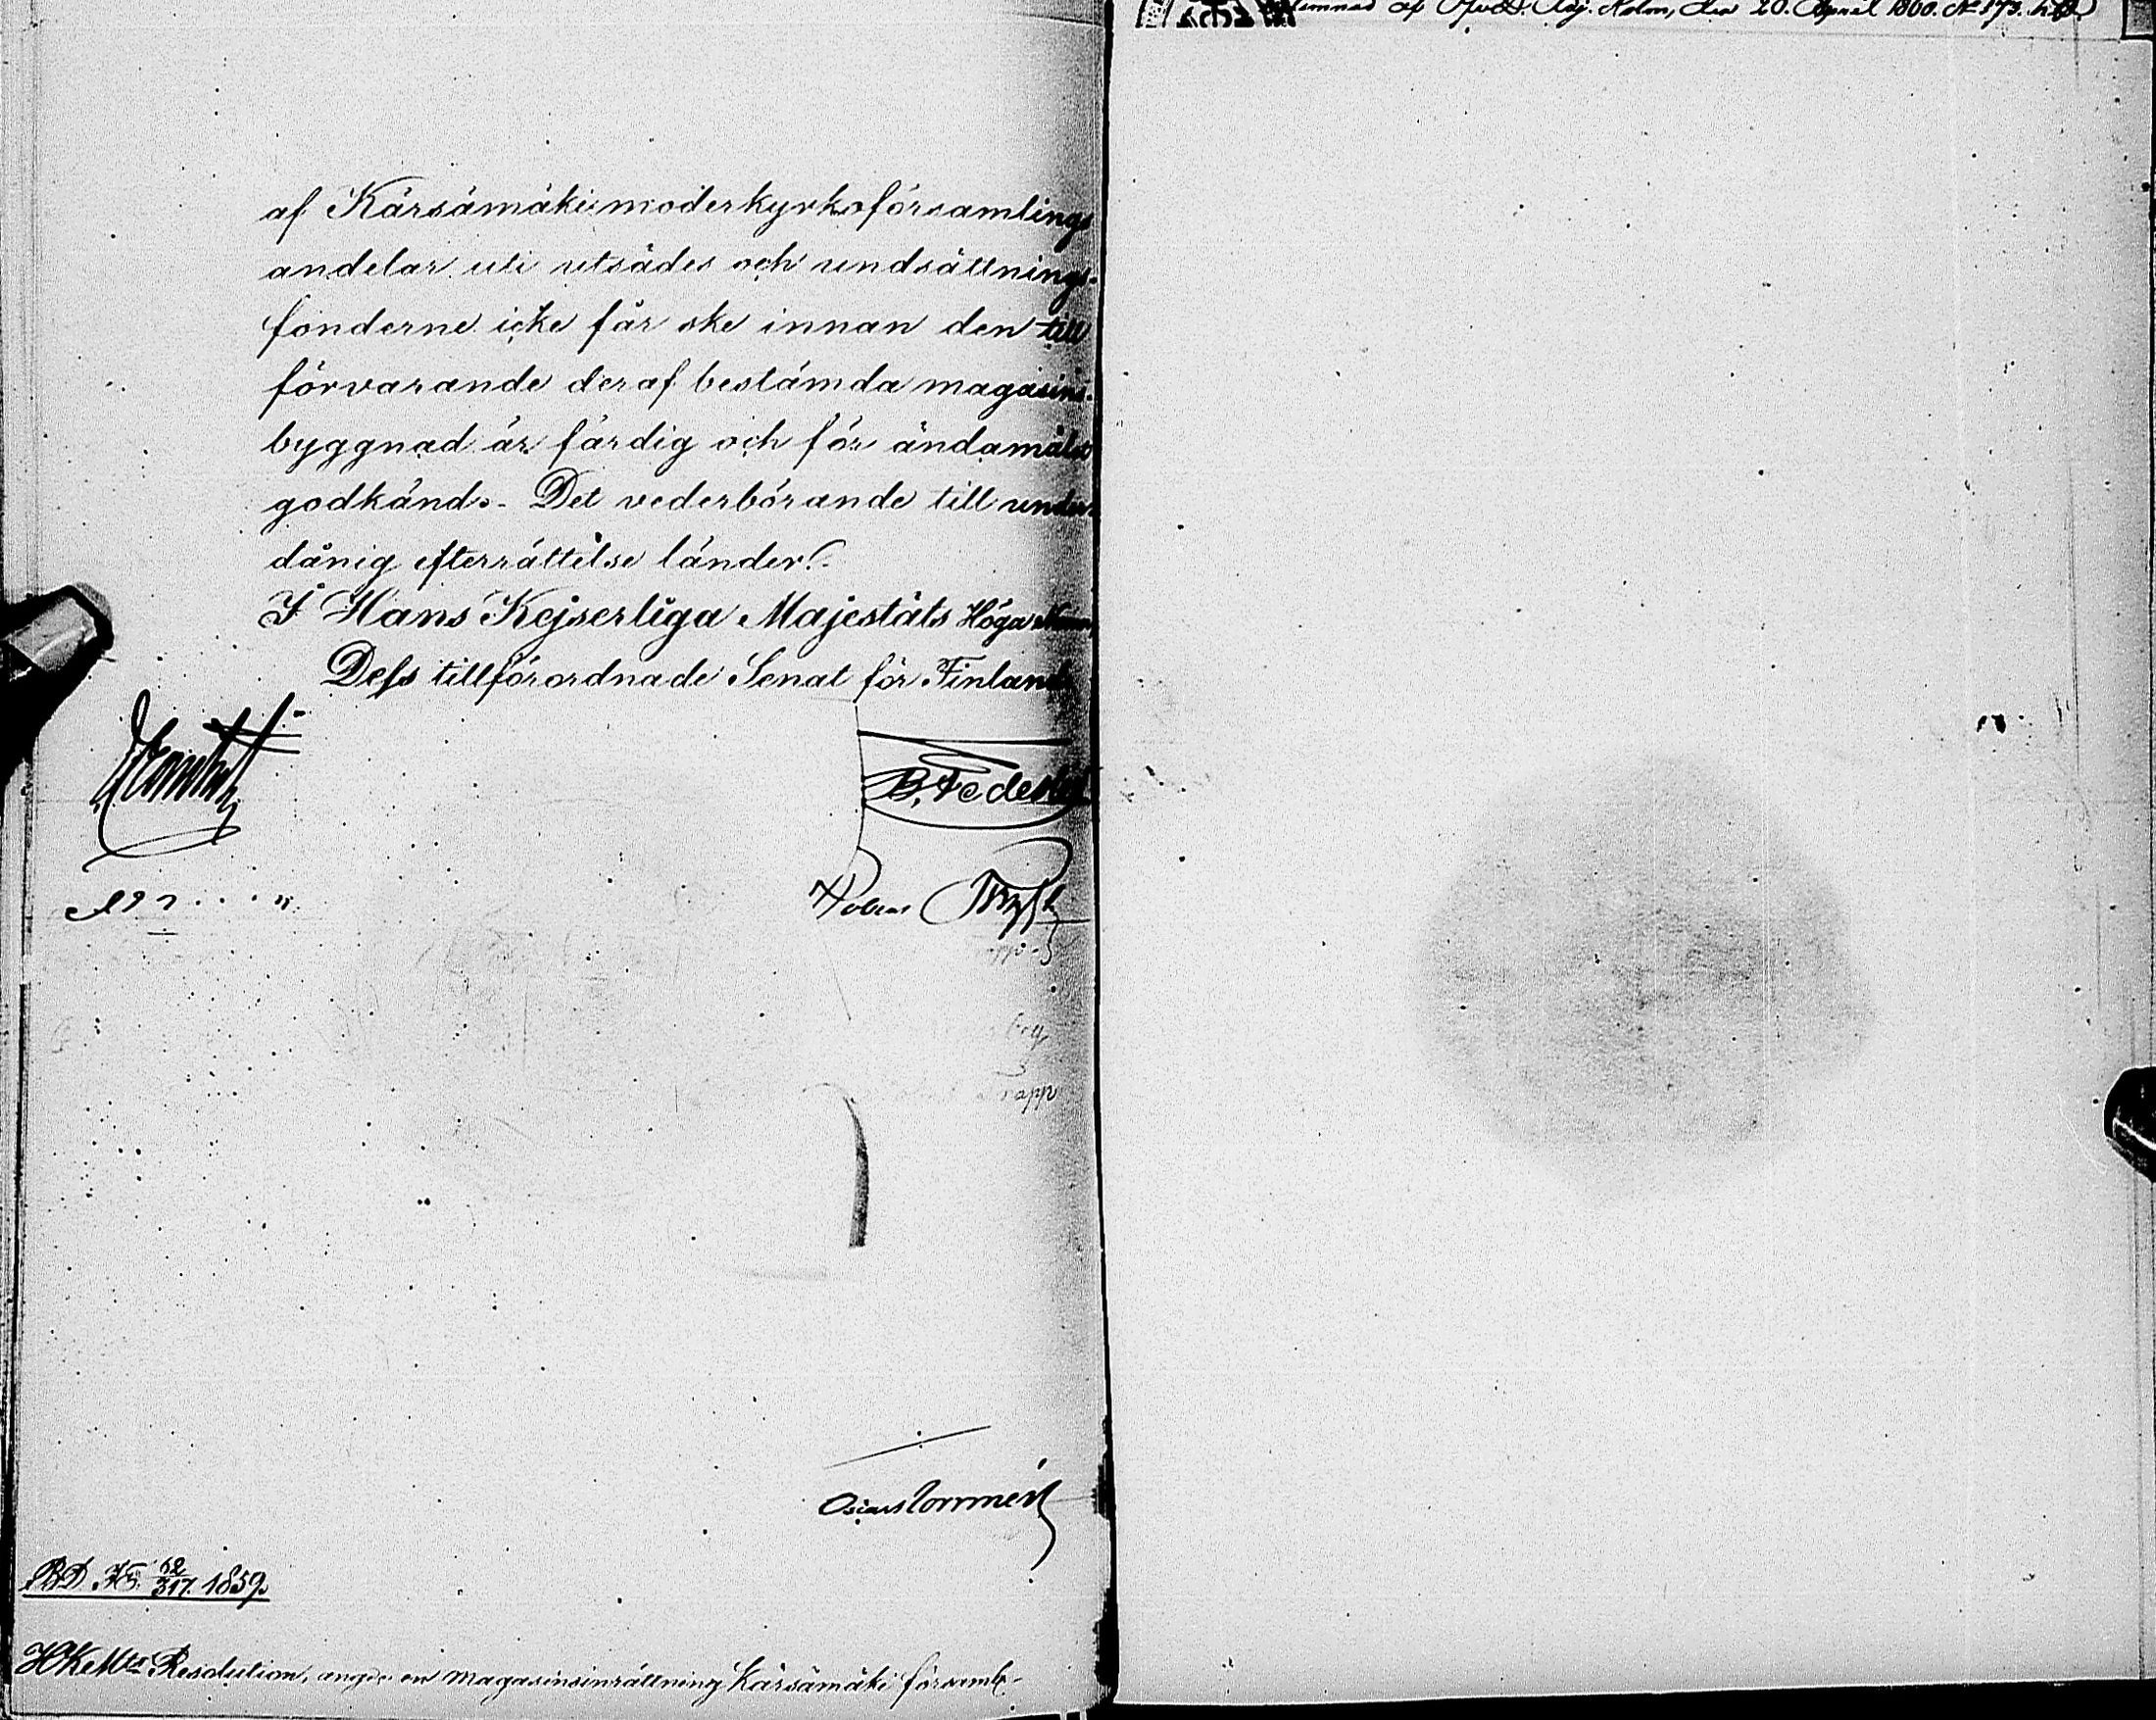 af Kärsämäki moderkyrkoförsamlings
andelar uti utsädes och undsättnings-
fonderne icke får ske innan den till
förvarande deraf bestämda magasins-
byggnad är färdig och för ändamålet
godkänd. Det vederbörande till under-
dånig efterrättelse länder.
I Hans Kejserliga Majestäts Höga Namn,
Dess tillförordnade Senat för Finland
B. Federley
Robert Trapp
Trapp
BD. Kg. 62/317. 1859.
HKeMts Resolution, ang:e en magasinsinrättning Kärsämäki församl.
af Öfved. den 20. April 1860. No 173.